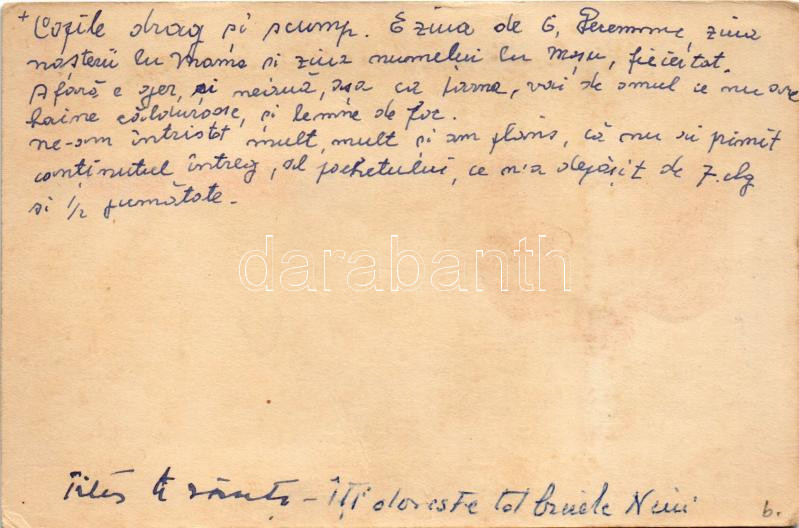 + Copile drag si scump. E ziua de 6, Decemvrie, ziua
nasterii lu Mama si ziua numelui lu Mosu, fiicei tat.
Afară e ger, si neiauă, asa ca iarna, vai de omul ce nu are
haine călduroase, si lemne de foc.
ne-am întristat mult, mult si am plâns, că nu ai primit
continutul întreg, al pachetului, ce n-a depăsit de 7. clg
si 1/2 jumătate.
darabanth
- Îți doreste tot binele Nini
b.